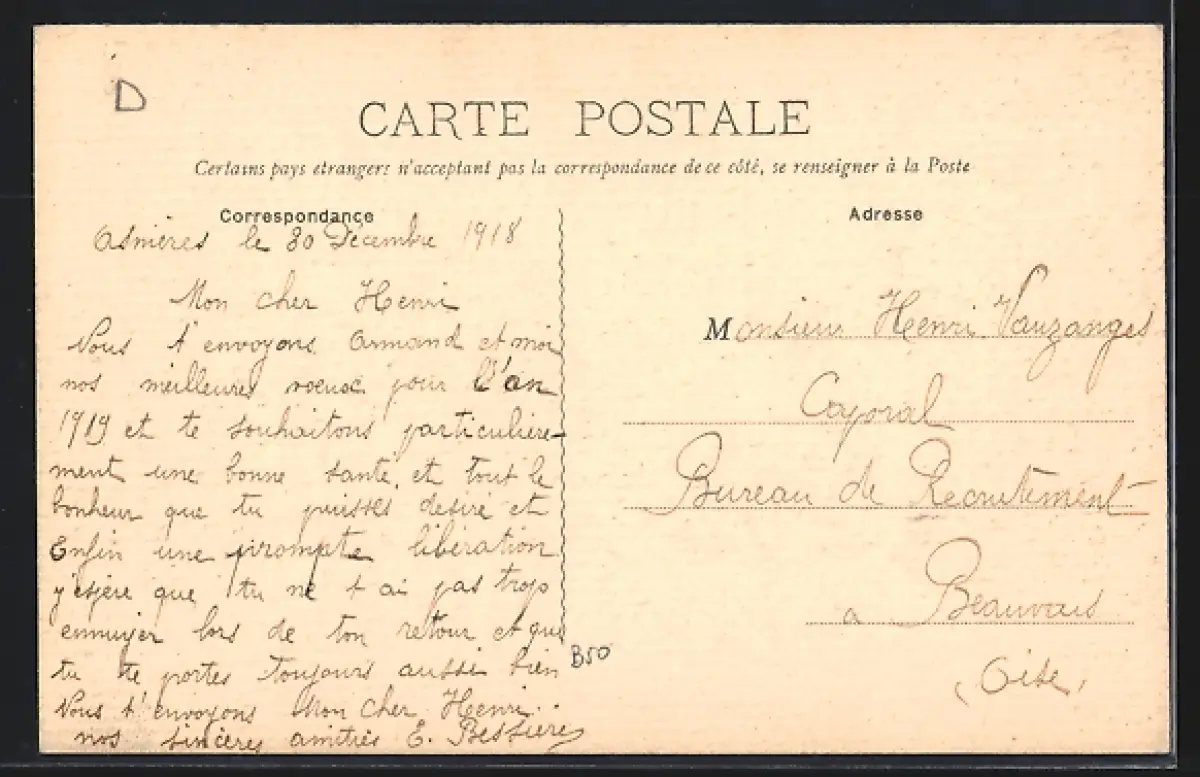 D
CARTE POSTALE
Certains pays etrangers n'acceptant pas la correspondance de ce côté, se renseigner à la Poste
Correspondance
Asnières le 30 Décembre 1918
Mon cher Henri
Nous t'envoyons Armand et moi
nos meilleures voeux pour l'an
1919 et te souhaitons particulière-
ment une bonne santé, et tout le
bonheur que tu puisses desiré et
Enfin une prompte libération
j'espère que tu ne t ai pas trop
ennuyer lors de ton retour et que
tu te portes toujours aussi bien
Nous t'envoyons Mon Cher Henri
nos sincères amitiés E. Bessières
B50
Adresse
Monsieur Henri Vauzanges
Caporal
Bureau de Recrutement
a Beauvais
(Oise)